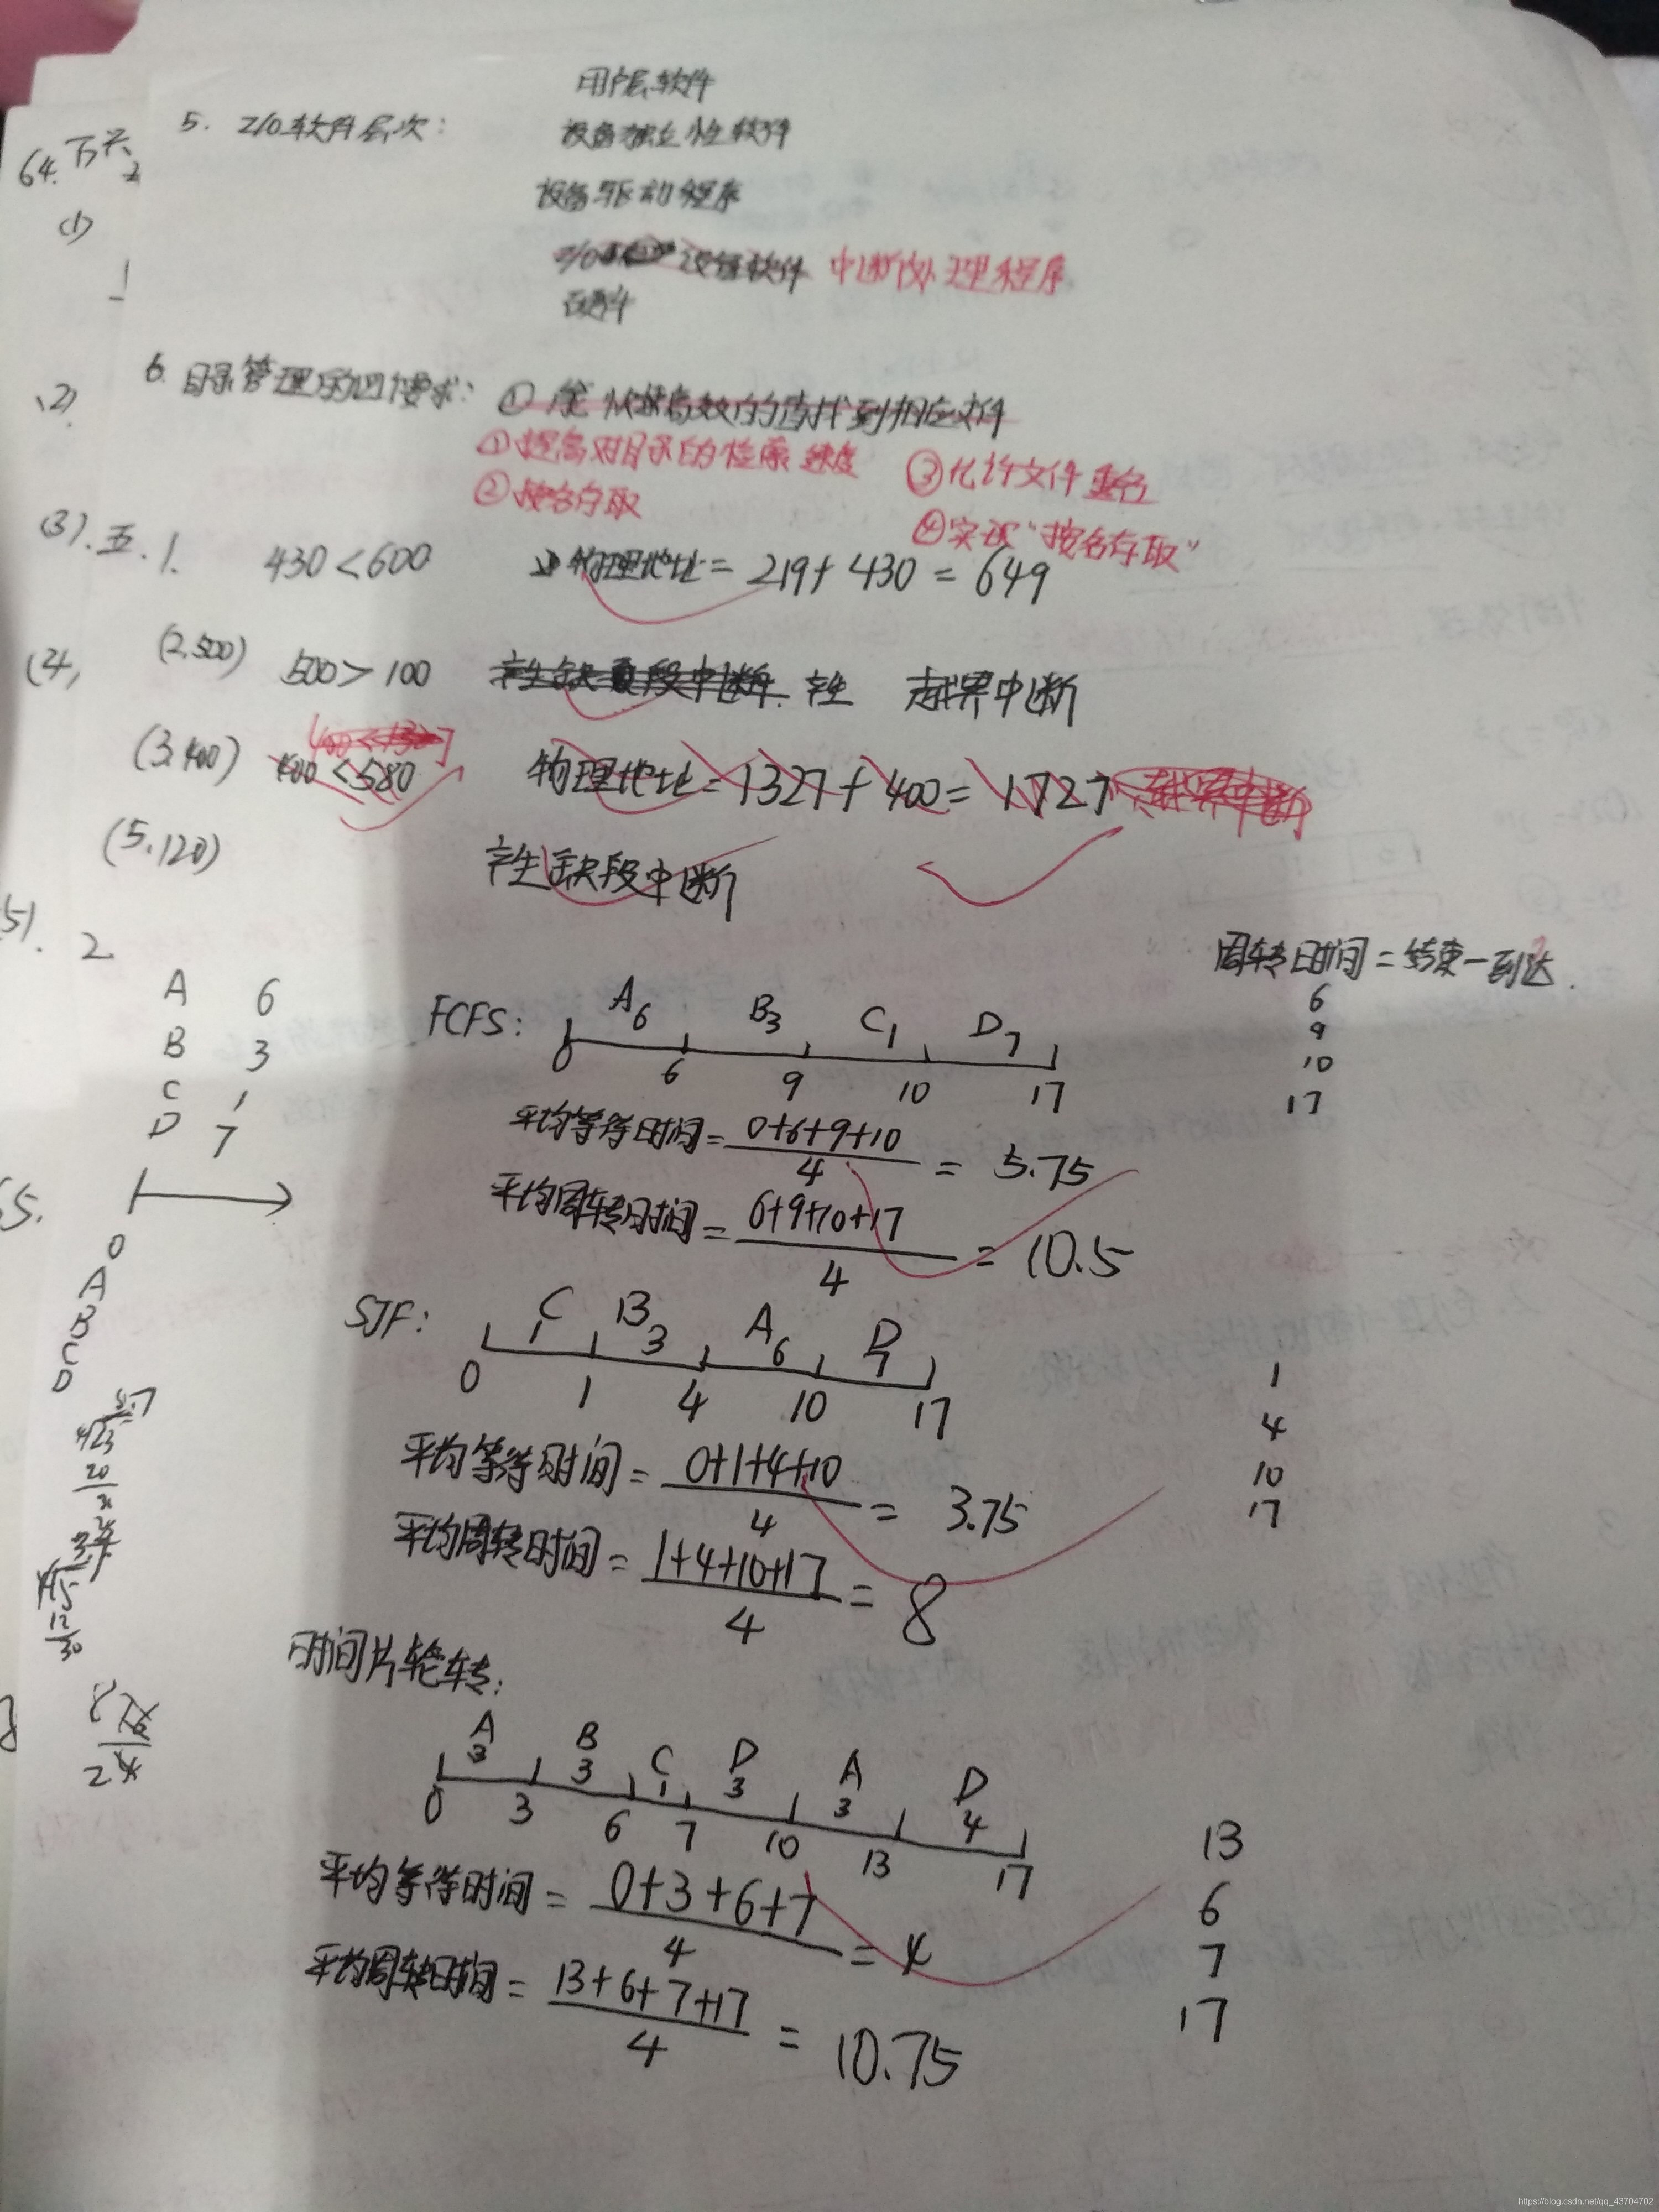 用户层软件
5. I/O软件层次:
设备独立性软件
设备驱动程序
中断处理程序
硬件
6 目录管理的四个要求: ① 能快速高效的查找到相应文件
①提高对目录的检索速度 ③允许文件重名
②按名存取
④实现"按名存取"
五.1. 430<600 物理地址=219+430=649
(2.500) 500>100 产生缺页段中断. 产生 越界中断
(3.400) 400<580 物理地址=1327+400=1727 越界中断
(5.120) 产生缺段中断
2. 周转时间=结束-到达.
A 6
B 3
C 1
D 7
FCFS: A6 B3 C1 D7
0 6 9 10 17
6
9
10
17
平均等待时间=0+6+9+10/4 = 5.75
平均周转时间=6+9+10+17/4 = 10.5
0
A
B
C
D
SJF: C1 B3 A6 D7
0 1 4 10 17
1
4
10
17
平均等待时间=0+1+4+10/4 = 3.75
平均周转时间=1+4+10+17/4 = 8
时间片轮转:
A3 B3 C1 D3 A3 D4
0 3 6 7 10 13 17
13
6
7
17
平均等待时间=0+3+6+7/4 = 4
平均周转时间=13+6+7+17/4 = 10.75
64.
(1)
(2)
(3).
(4)
https://blog.csdn.net/qq_43704702